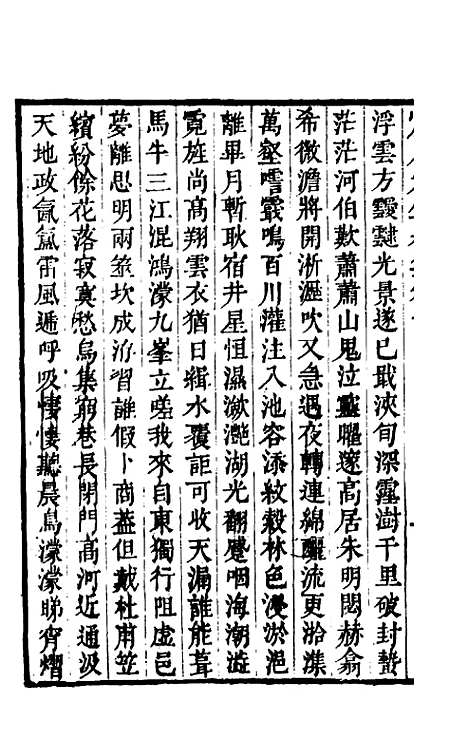 浮雲方靉靆光景遂已戢浹旬深霪澍千里破封蟄
茫茫河伯歎蕭蕭山鬼泣靈曜邃高居朱明閟赫翕
希微澹將開淅瀝吹又急遇夜轉連綿釃流更湁潗
萬壑嘈霰鳴百川灌注入池容添紋縠林色浸淤浥
離畢月暫耿宿井星恒濕瀲灧湖光翻蹙咽海潮澁
霓旌尚高翔雲衣猶日緝水覆詎可收天漏誰能葺
馬牛三江混鴻濛九峯立嗟我來自東獨行阻虛邑
夢離思明兩筮坎成洊習誰假卜商蓋但戴杜甫笠
繽紛餘花落寂寞愁鳥集窮巷長閉門高河近通汲
天地政氤氳雷風遞呼吸悽悽聽晨鳥濛濛睇宵熠